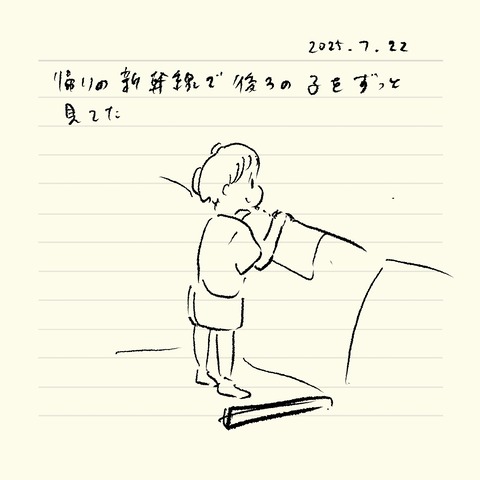 2025.7.22
帰りの新幹線で後ろの子をずっと
見てた